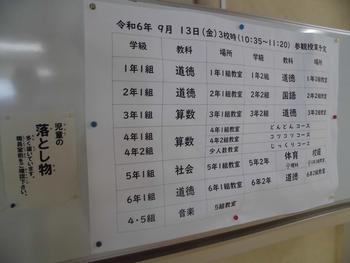 令和6年 9月 13日(金)3校時(10:35~11:20) 参観授業予定
学級 教科 場所 学級 教科 場所
1年1組 道徳 1年1組教室 1年2組 道徳 1年2組教室
2年1組 道徳 2年1組教室 2年2組 国語 2年2組教室
3年1組 算数 3年1組教室 3年2組 道徳 3年2組教室
4年1組 4年2組 算数 4年1組教室 どんどんコース
4年2組教室 コツコツコース
少人数教室 じっくりコース
5年1組 社会 5年1組教室 5年2組 体育
6年1組 道徳 6年1組教室 6年2組 道徳 6年2組教室
4・5組 音楽 5組教室
児童の
落とし物
多く届いています。
職員室前を
ご確認下さい。